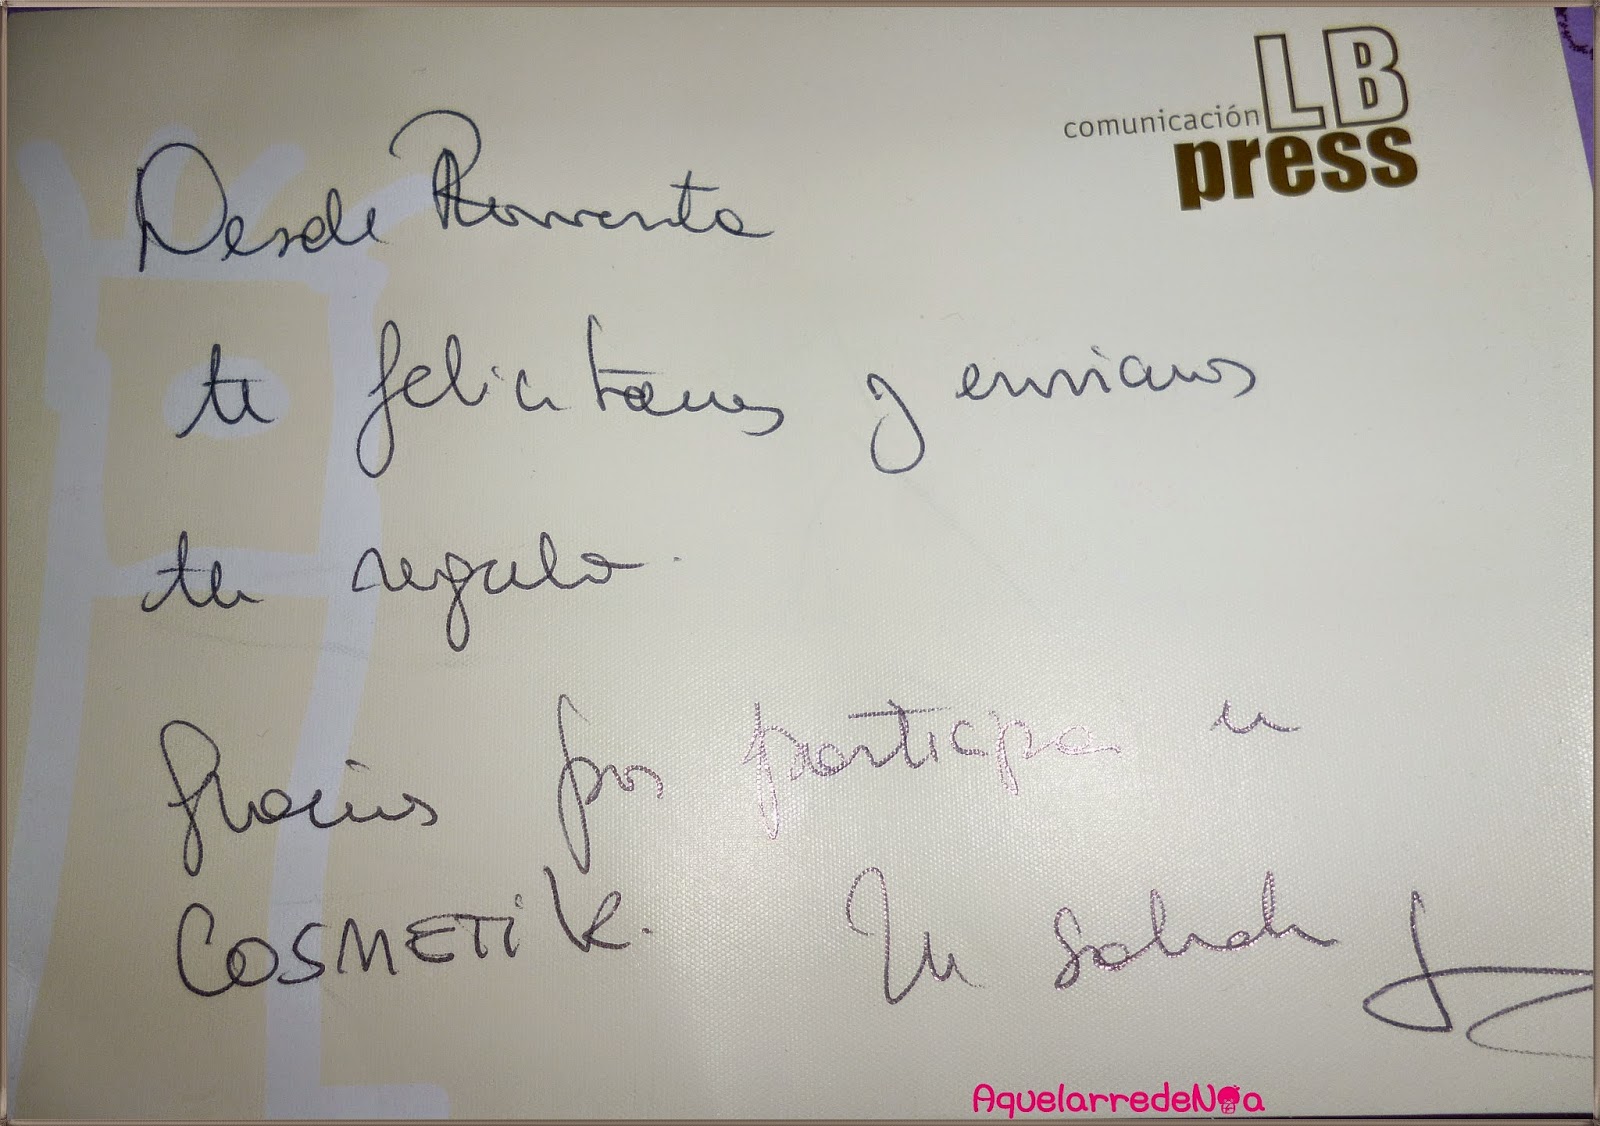 LB
comunicación
press
Desde Rowenta
te felicitamos y enviamos
tu regalo.
Gracias por participar en
COSMETIK. Un saludo
AquelarredeNoa